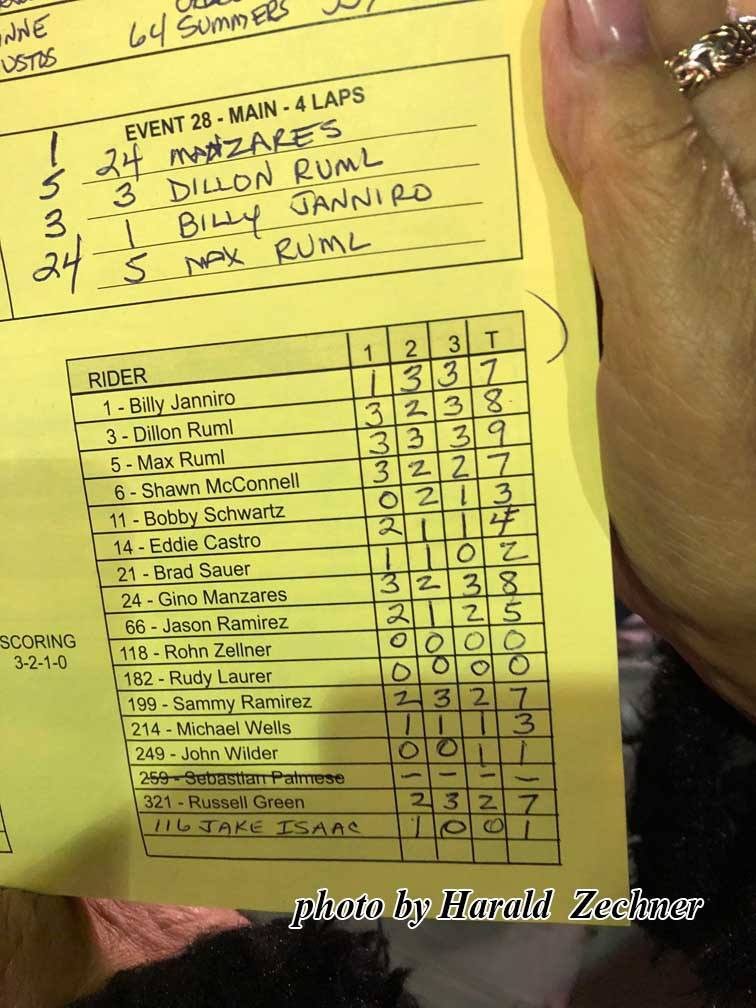 NNE
64 SUMMERS
USTOS
EVENT 28 - MAIN - 4 LAPS
1 24 MANZARES
5 3 DILLON RUML
3 1 BILLY JANNIRO
24 5 MAX RUML
RIDER 1 2 3 T
1 - Billy Janniro 1 3 3 7
3 - Dillon Ruml 3 2 3 8
5 - Max Ruml 3 3 3 9
6 - Shawn McConnell 3 2 2 7
11 - Bobby Schwartz 0 2 1 3
14 - Eddie Castro 2 1 1 4
21 - Brad Sauer 1 1 0 2
24 - Gino Manzares 3 2 3 8
66 - Jason Ramirez 2 1 2 5
118 - Rohn Zellner 0 0 0 0
182 - Rudy Laurer 0 0 0 0
199 - Sammy Ramirez 2 3 2 7
214 - Michael Wells 1 1 1 3
249 - John Wilder 0 0 1 1
259 - Sebastian Palmese - - - -
321 - Russell Green 2 3 2 7
116 JAKE ISAAC 1 0 0 1
SCORING
3-2-1-0
photo by Harald Zechner